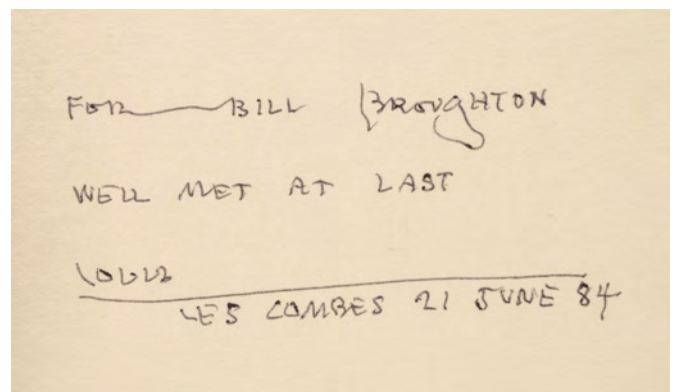 FOR BILL BROUGHTON
WELL MET AT LAST
LES COMBES 21 JUNE 84